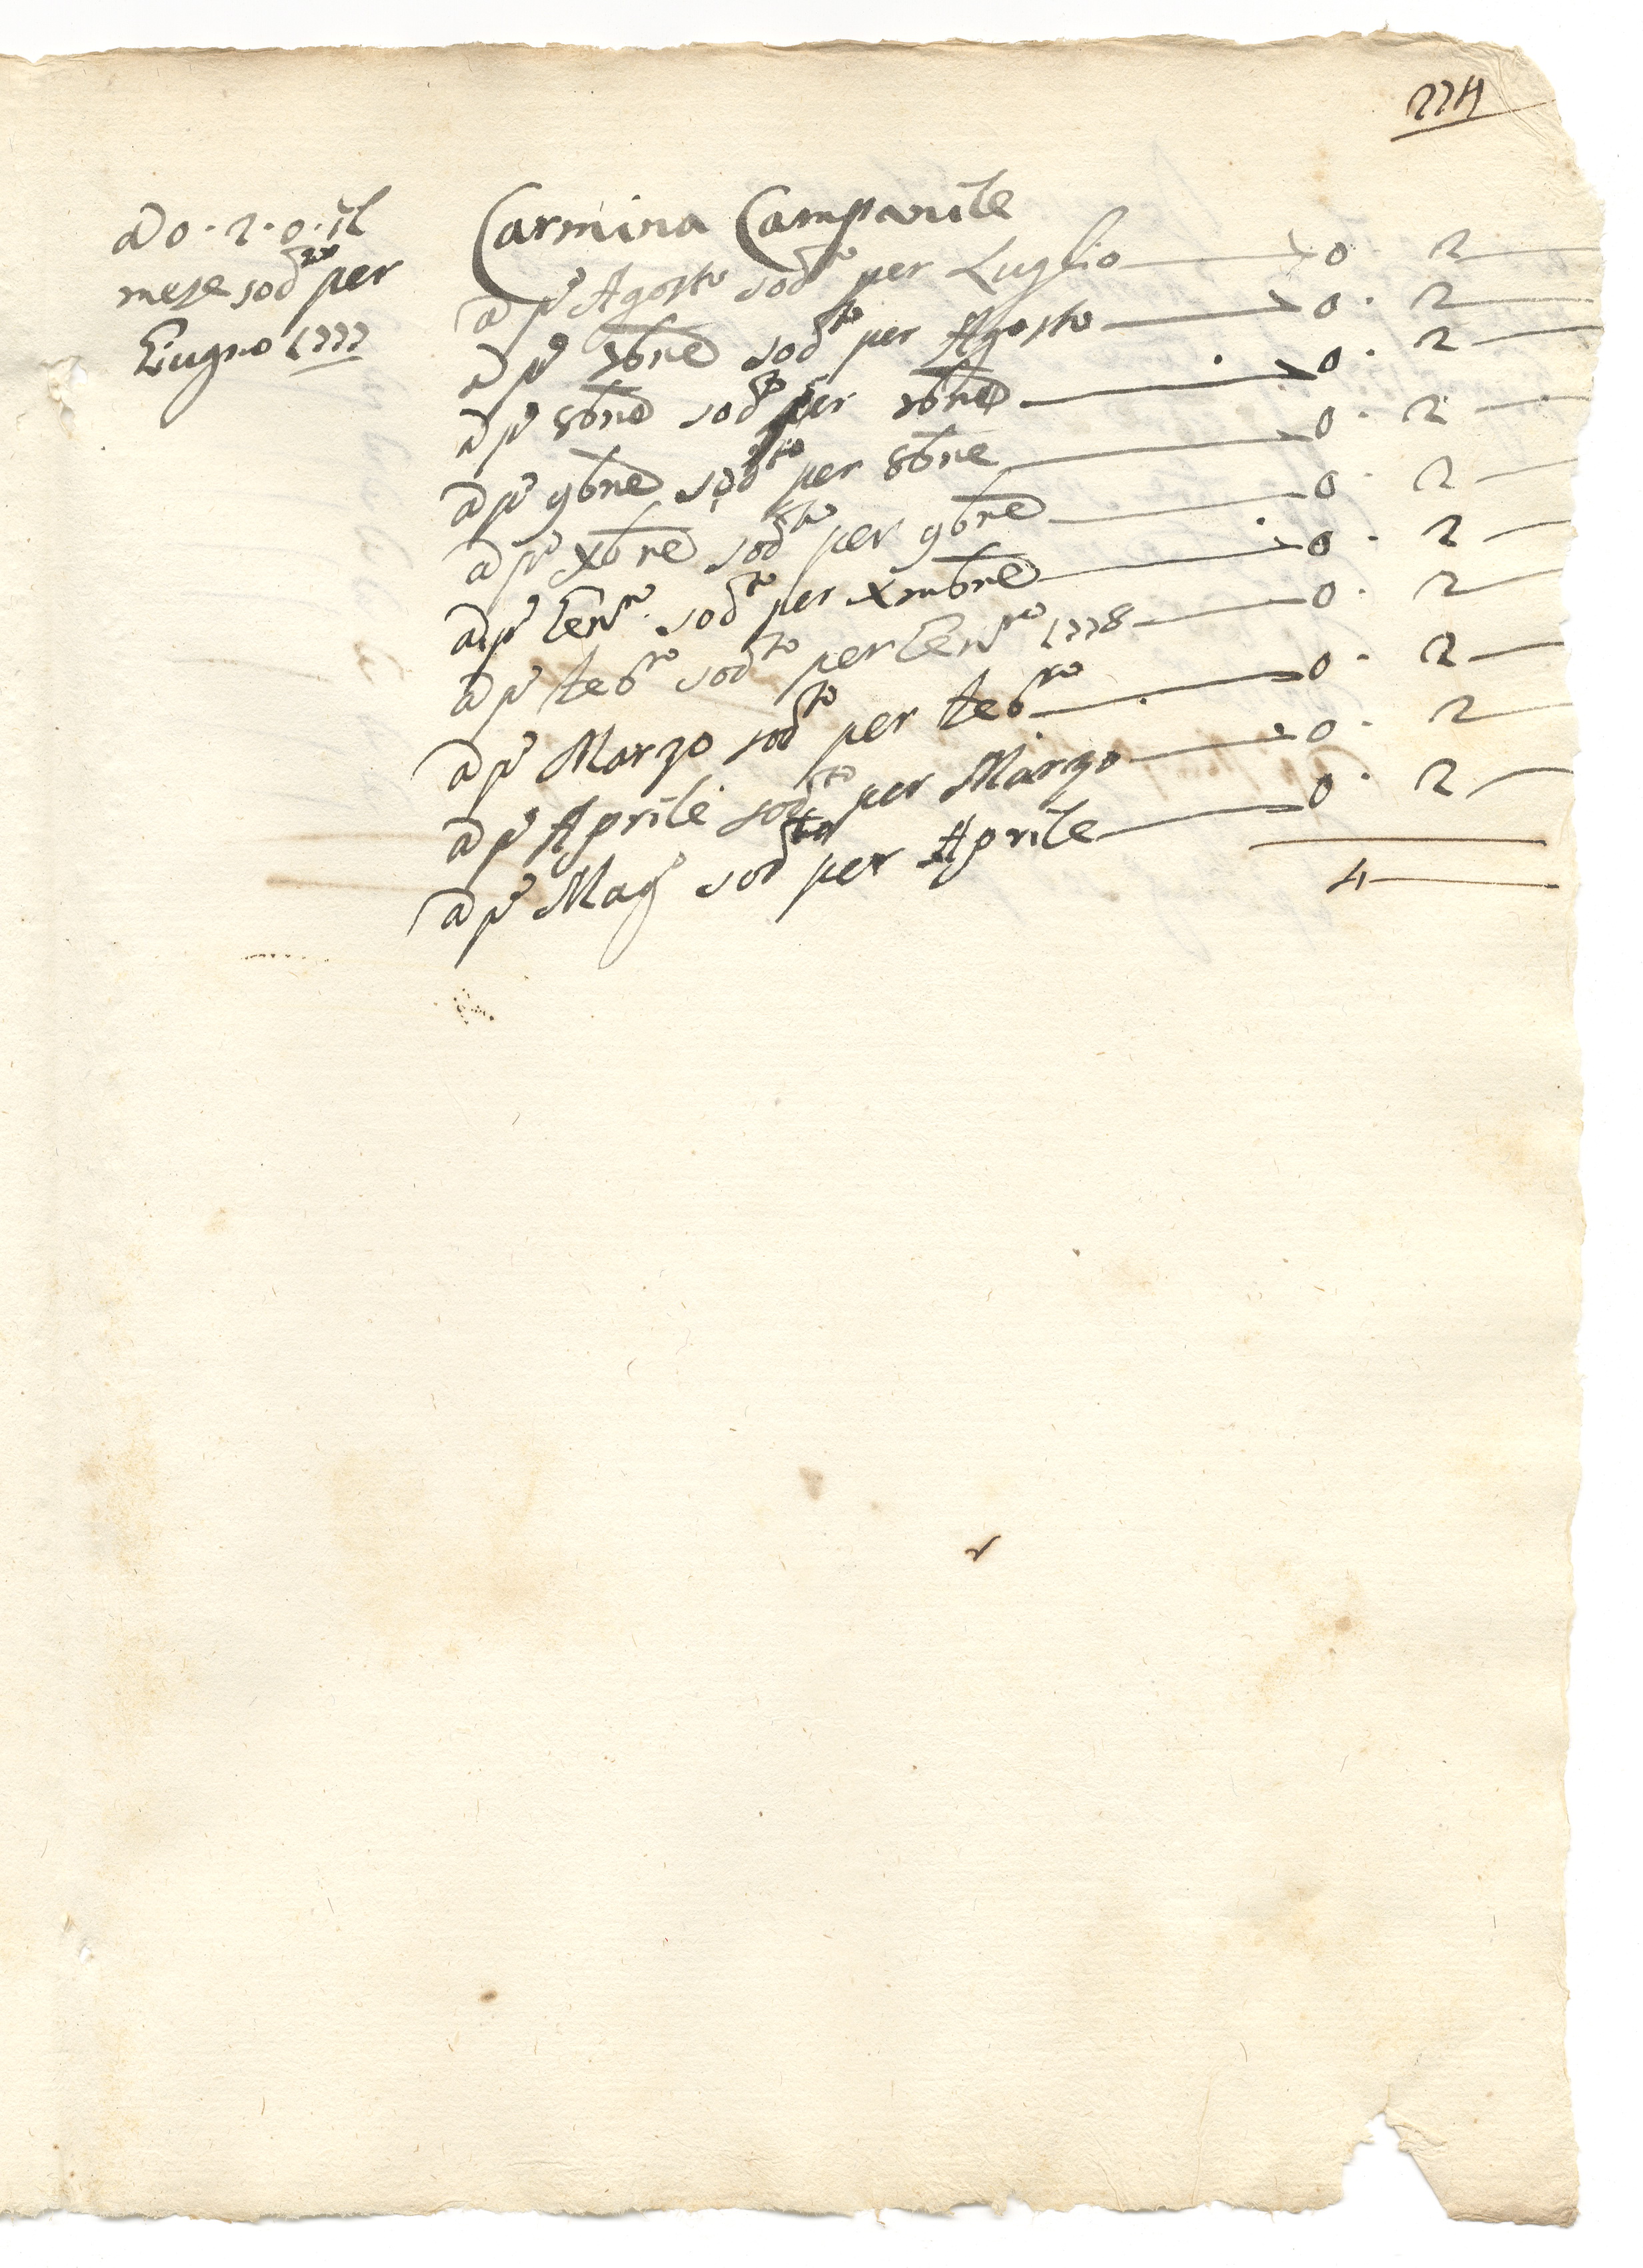 224
a D 0 . 2 . 0 . il
mese sod.to per
Giugno 1777
Carmina Campanile
a p.o Agosto sod.to per Luglio 0 . 2
a p.o 7bre sod.to per Agosto 0 . 2
a p.o 8bre sod.to per 7bre 0 . 2
a p.o 9bre sod.to per 8bre 0 . 2
a p.o Xbre sod.to per 9bre 0 . 2
a p.o Gen.ro sod.to per Xmbre 0 . 2
a p.o feb.ro sod.to per Gen.ro 1778 0 . 2
a p.o Marzo sod.to per feb.ro 0 . 2
a p.o Aprile sod.to per Marzo 0 . 2
a p.o Mag.o sod.to per Aprile 0 . 2
4